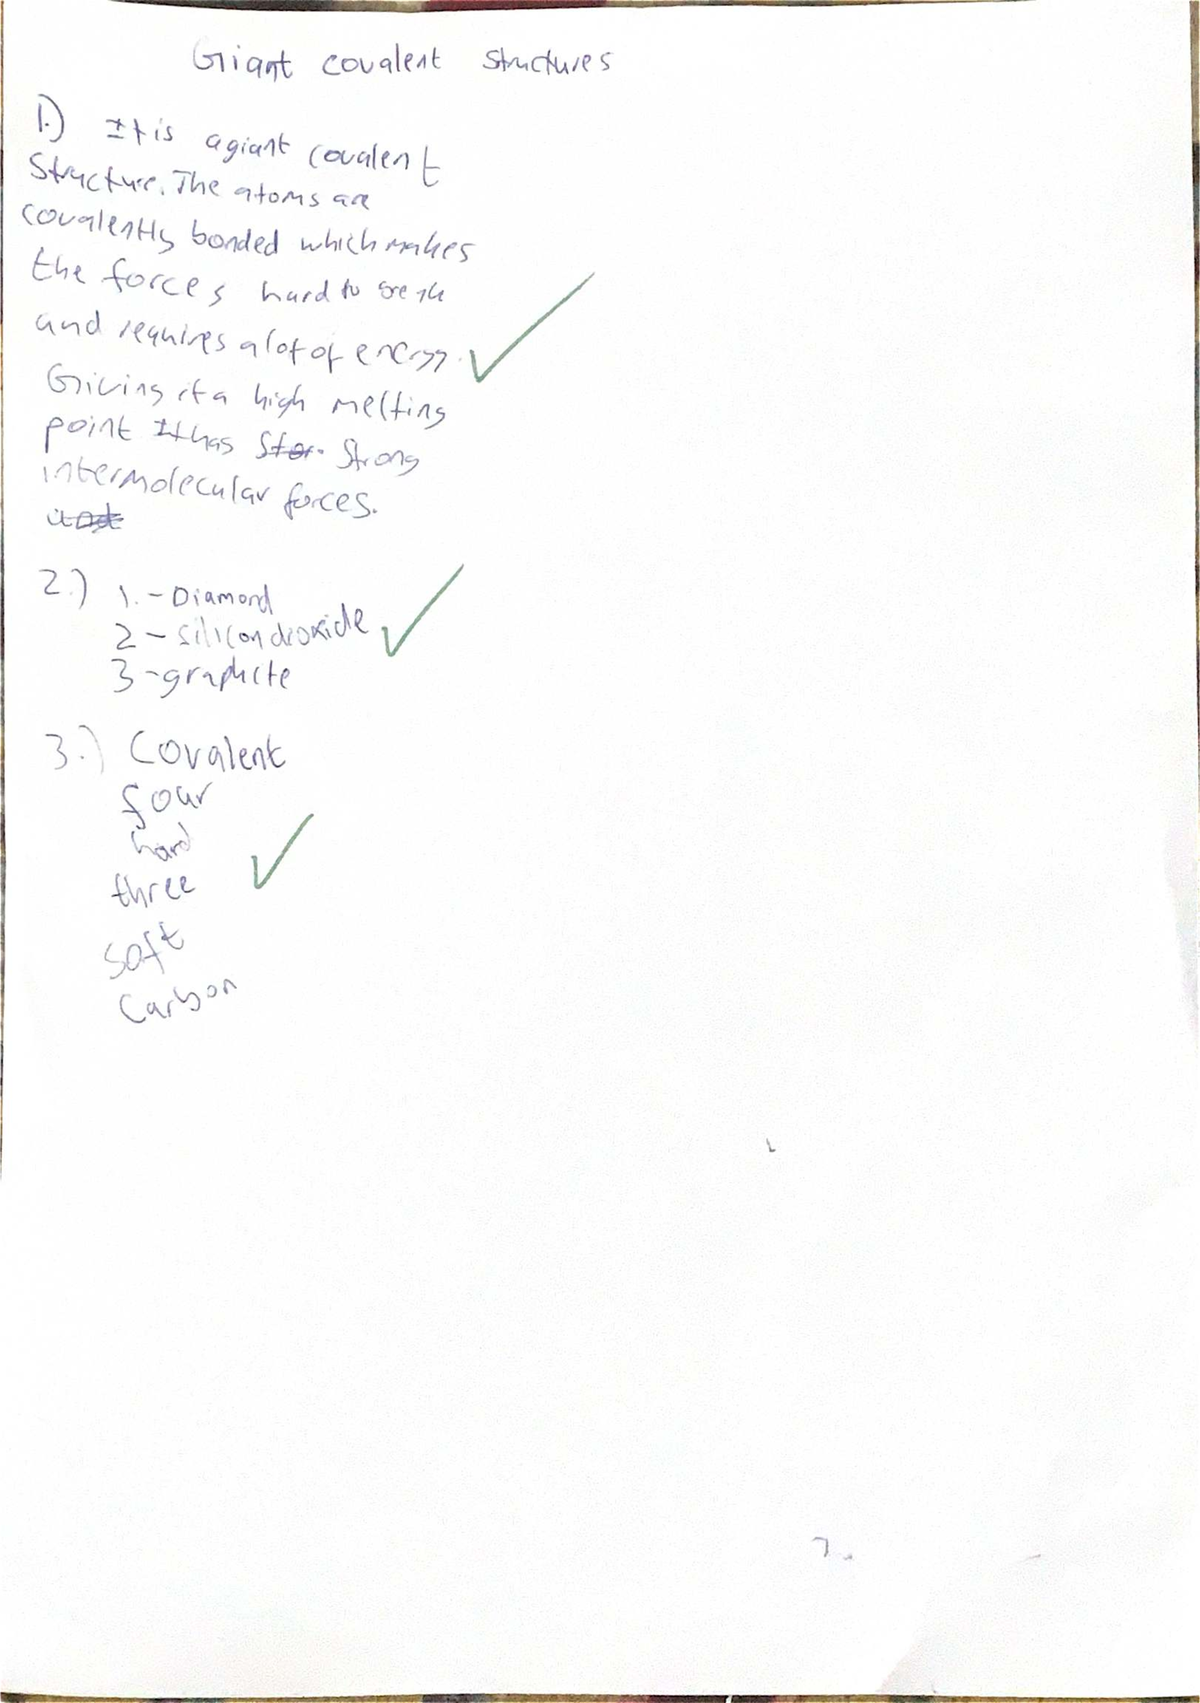 Giant covalent structures
1.) It is a giant covalent
Structure. The atoms are
covalently bonded which makes
the forces hard to break
and requires a lot of energy.
Giving it a high melting
point It has Strong
intermolecular forces.
2.) 1. - Diamond
2 - silicon dioxide
3 - graphite
3.) Covalent
four
hard
three
soft
Carbon